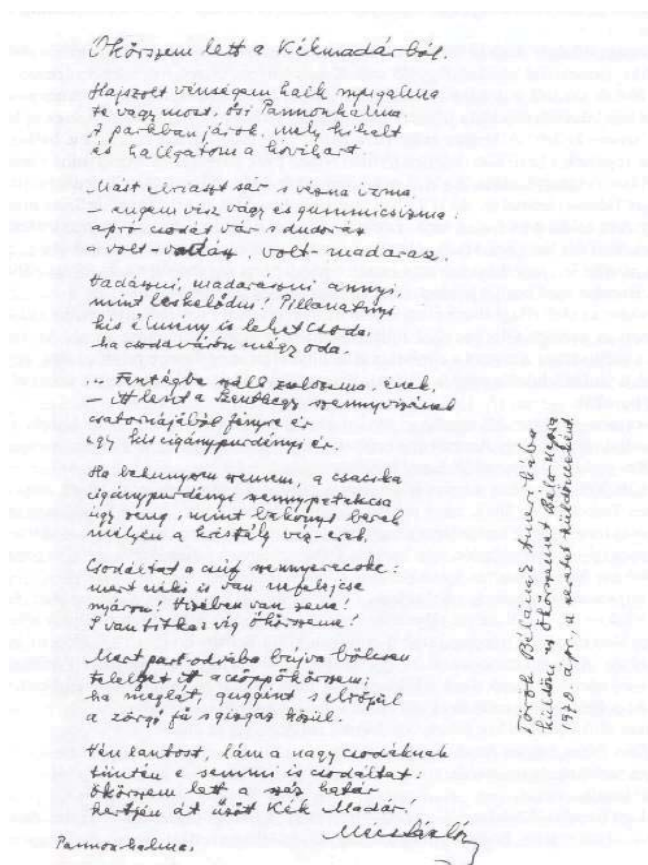 Ökörszem lett a Kékmadárból.
Hajszolt vénségem nyugalma
te vagy most, ősi Pannonhalma.
A parkban járok, mely kihalt
és hallgatom a kóválást.
Mást elriaszt sár s vézna
– engem visz vágy és gummicsizma:
apró csodát vár s dudorász
a volt-vadász, volt-madarász.
Vadászni, madarászni annyi,
mint leskelődni! Pillanatnyi
kis semmi is lehet csoda
ha csodaváron mégy oda.
– Fent égbe száll zsolozsma, ének,
– itt lent a Szenthegy szennyvizének
csatornájából fényre ér
egy kis cigánypurdényi ér.
Ha behunyom szemem, a csacska
cigánypurdényi
úgy zeng, mint bakonyi berek
mélyén a kristály víg-erek.
Csodáltat a szennyerecske:
mert néki is van nefelejcse
nyáron! Vizében van zene!
S van titkos víg ökörszeme!
Mert part-odvába bújva bölcsen
telelget itt a csöppökörszem:
ha meglát, guggint s elröpül
a zörgő fű s gizgaz közül.
Vén lantost, lám a nagy csodáknak
tüntén e semmi is csodáltat:
ökörszem lett a száz határ
kertjén át űzött Kék Madár!
Mécs László
Pannonhalma.
Török Bálint
küldöm az ökörszemet
1970. ápr. a verset